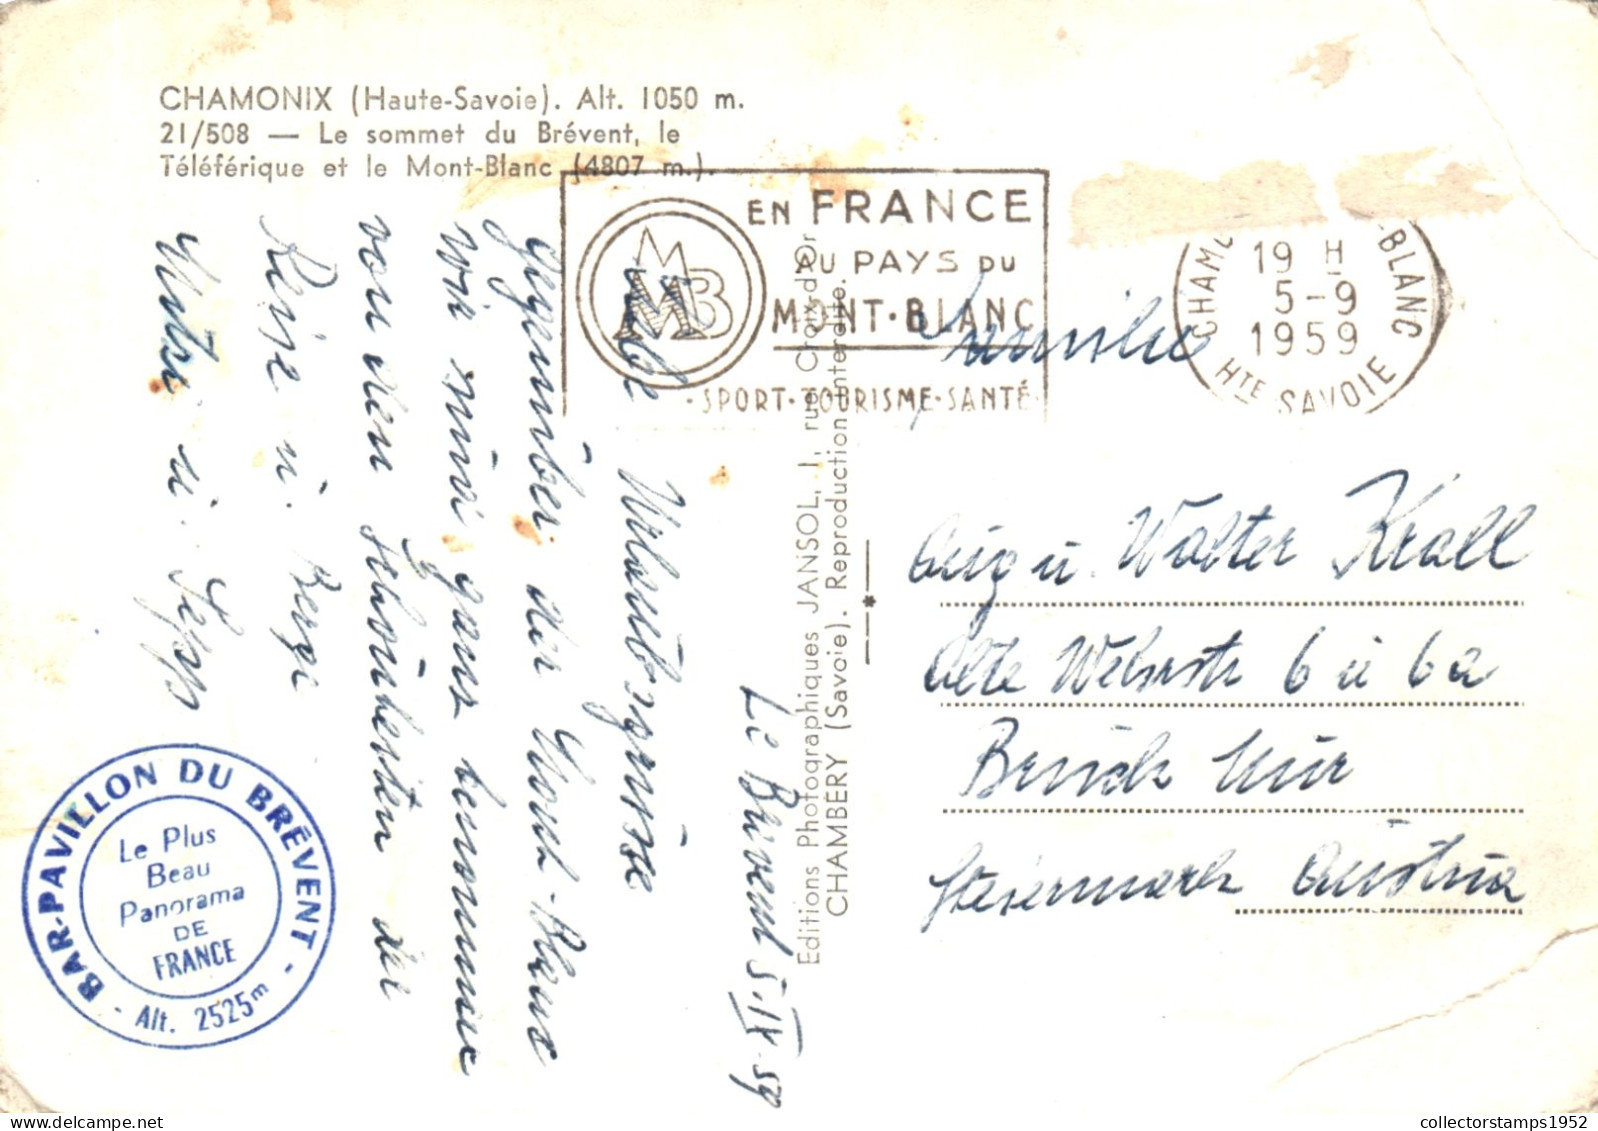 CHAMONIX (Haute-Savoie). Alt. 1050 m.
21/508 — Le sommet du Brévent, le
Téléférique et le Mont-Blanc (4807 m.).
EN FRANCE
AU PAYS DU
MONT-BLANC
·SPORT·TOURISME·SANTÉ·
MMB
19 H
5-9
1959
-BLANC
HTE SAVOIE
Le Brévent 5.IX.59
Urlaubsgrüsse
gegenüber der Mont-Blanc
wie mir ganz
von den Schönheiten der
Reise u. Berge
Mutti u. Sepp
Editions Photographiques JANSOL, 1, rue Croix-d'Or
CHAMBERY (Savoie). Reproduction interdite.
Familie
u Walter Krall
Alte 6 u 6a
Bruck Mur
Steiermark Austria
BAR-PAVILLON DU BRÉVENT
Le Plus
Beau
Panorama
DE
FRANCE
- Alt. 2525m -
collectorstamps1952